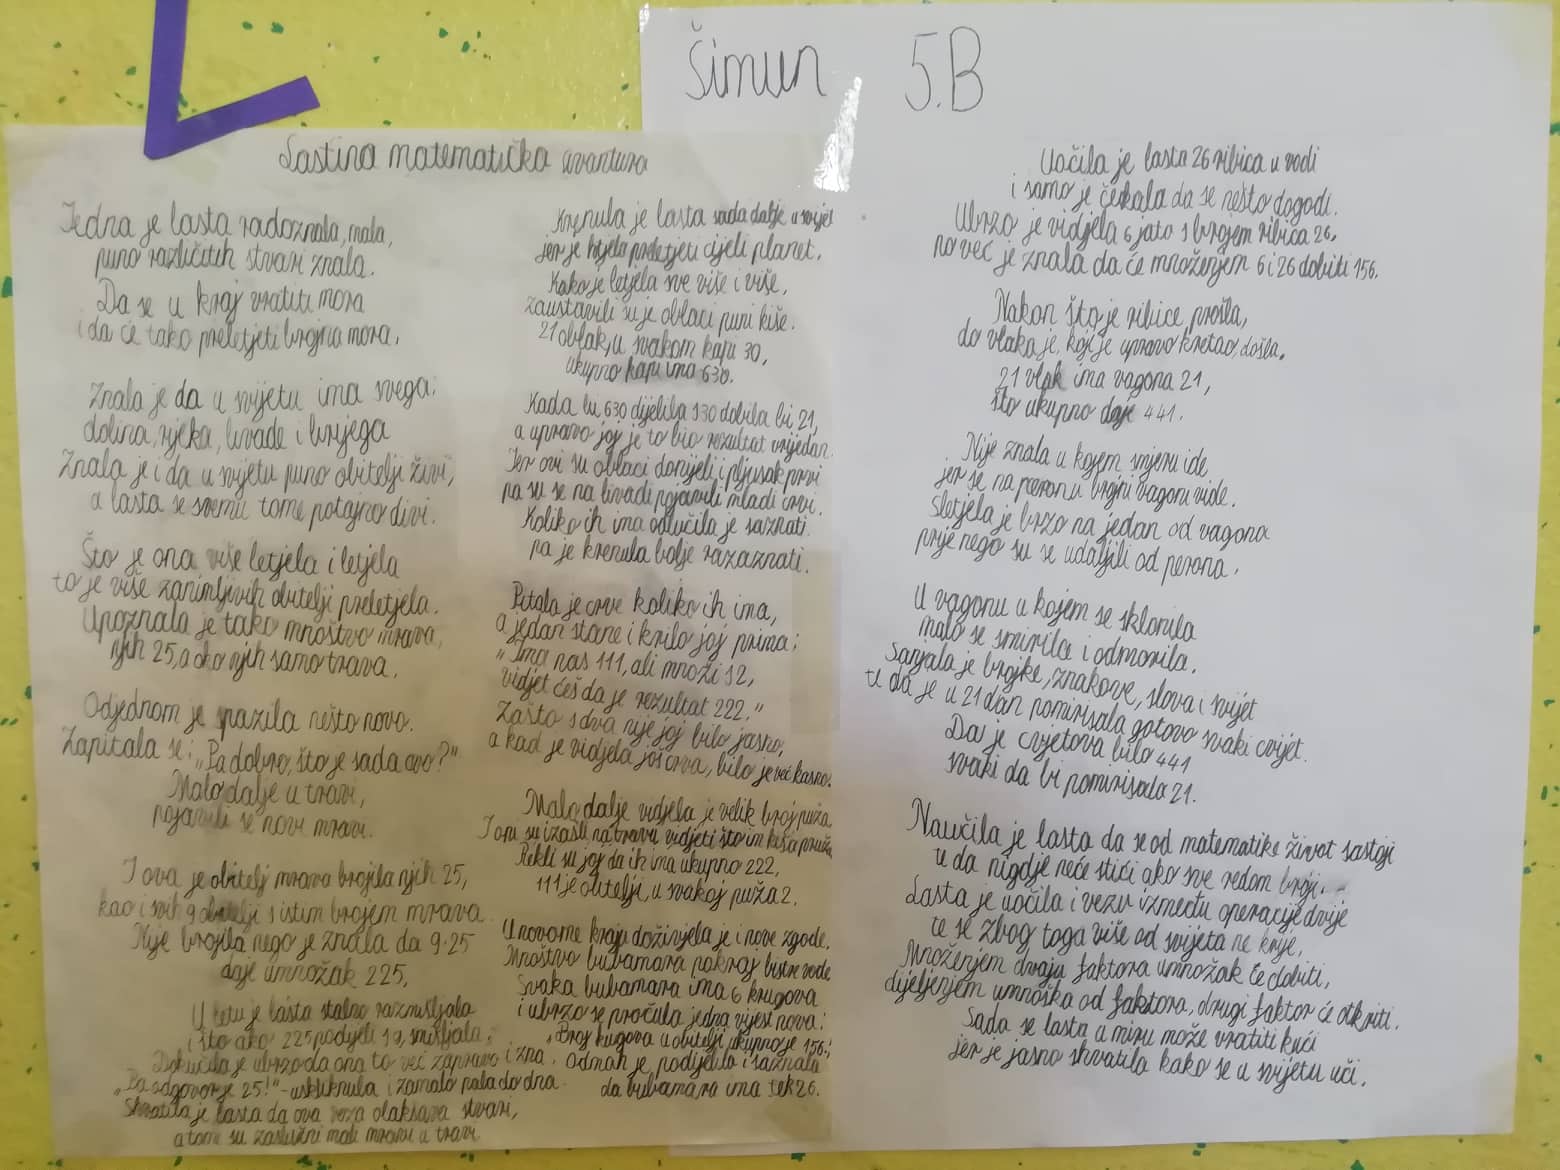 Šimun 5.B
Lastina matematička avantura
Jedna je lasta radoznala, mala,
puno različitih stvari znala.
Da se u kraj vratiti mora
i da će tako preletjeti brojna mora.
Znala je da u svijetu ima svega:
dolina, rijeka, livade i brijega
Znala je i da u svijetu puno obitelji živi,
a lasta se svemu tome potajno divi.
Što je ona više letjela i letjela
to je više zanimljivih obitelji preletjela.
Upoznala je tako mnoštvo mrava,
njih 25, a oko njih samo trava.
Odjednom je spazila nešto novo.
Zapitala se: „Pa dobro, što je sada ovo?"
Malo dalje u travi,
pojavili se novi mravi.
I ova je obitelj mrava brojila njih 25,
kao i svih 9 obitelji s istim brojem mrava.
Nije brojila nego je znala da 9·25
daje umnožak 225,
U letu je lasta stalno razmišljala
i što ako 225 podijeli s 9, smišljala.
Dokučila je ubrzo da ona to već zapravo i zna.
„Pa odgovor je 25!"-uskliknula i zamalo pala do dna.
Shvatila je lasta da ova veza olakšava stvari,
a tome su zaslužni mali mravi u travi
Krenula je lasta sada dalje u svijet
jer je htjela preletjeti cijeli planet.
Kako je letjela sve više i više,
zaustavili su je oblaci puni kiše.
21 oblak, u svakom kapi 30,
ukupno kapi ima 630.
Kada bi 630 dijelila s 30 dobila bi 21,
a upravo joj je to bio rezultat vrijedan.
Jer ovi su oblaci donijeli i pljusak prvi
pa su se na livadi pojavili mladi crvi.
Koliko ih ima odlučila je saznati
pa je krenula bolje razaznati.
Pitala je crve koliko ih ima,
a jedan stane i krilo joj prima:
„Ima nas 111, ali množi s 2,
vidjet ćeš da je rezultat 222."
Zašto s dva nije joj bilo jasno,
a kad je vidjela još crva, bilo je već kasno.
Malo dalje vidjela je velik broj puža
I oni su izašli na travu vidjeti što im kiša pruža
Rekli su joj da ih ima ukupno 222,
111 je obitelji, u svakoj puža 2.
U novome kraju doživjela je i nove zgode.
Mnoštvo bubamara pokraj bistre vode
Svaka bubamara ima 6 krugova
i ubrzo se pročula jedna vijest nova:
„Broj kugova u obitelji ukupno je 156."
Odmah je podijelila i saznala
da bubamara ima tek 26.
Uočila je lasta 26 ribica u vodi
i samo je čekala da se nešto dogodi.
Ubrzo je vidjela 6 jato s brojem ribica 26,
no već je znala da će množenjem 6 i 26 dobiti 156.
Nakon što je ribice prošla,
do vlaka je, koji je upravo kretao, došla.
21 vlak ima vagona 21,
što ukupno daje 441.
Nije znala u kojem smjeru ide
jer se na peronu brojni vagoni vide.
Sletjela je brzo na jedan od vagona
prije nego su se udaljili od perona.
U vagonu u kojem se sklonila
malo se smirila i odmorila.
Sanjala je brojke, znakove, slova i svijet
te da je u 21 dan pomirisala gotovo svaki cvijet.
Da je cvjetova bilo 441
svaki da bi pomirisala 21.
Naučila je lasta da se od matematike život sastoji
te da nigdje neće stići ako sve redom broji.
Lasta je uočila i vezu između operacije dvije
te se zbog toga više od svijeta ne krije.
Množenjem dvaju faktora umnožak će dobiti,
dijeljenjem umnoška od faktora, drugi faktor će otkriti.
Sada se lasta u miru može vratiti kući
jer je jasno shvatila kako se u svijetu uči.